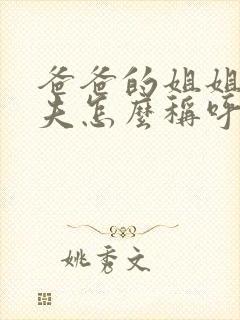 爸爸的姐姐
夫怎麼稱呼
姚秀文